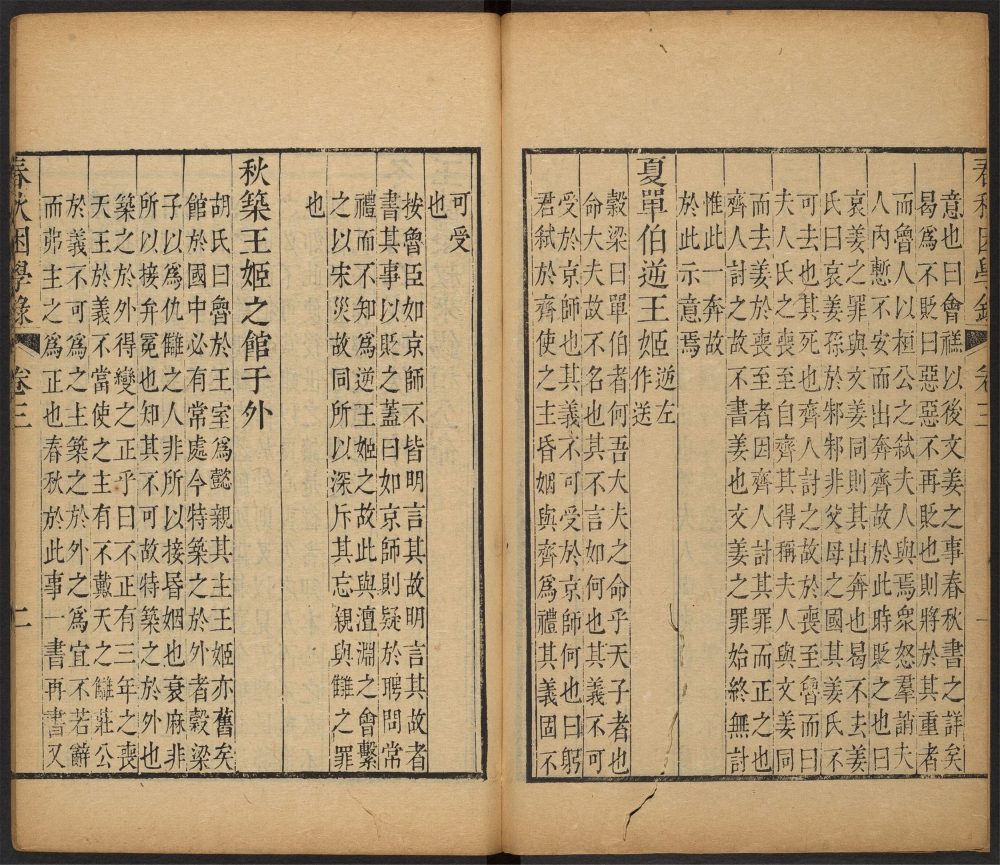 春秋困學錄 卷三 一
意也曰會禚以後文姜之事春秋書之詳矣
曷爲不貶曰惡惡不再貶也則將於其重者
而魯人以桓公之弒夫人與焉衆怒羣誚夫
人內慙不安而出奔齊故於此時貶之也曰
哀姜之罪與文姜同則其出奔也曷不去姜
氏曰哀姜孫於邾邾非父母之國其姜氏不
可去也其死也齊人討之故於喪至魯而曰
夫人氏之喪至自齊其得稱夫人與文姜同
而去姜於喪至者因齊人討其罪而正之也
齊人討之故不書姜也文姜之罪始終無討
惟此一奔故
於此示意焉
夏單伯逆王姬逆左作送
穀梁曰單伯者何吾大夫之命乎天子者也
命大夫故不名也其不言如何也其義不可
受於京師也其義不可受於京師何也曰躬
君弒於齊使之主昏姻與齊爲禮其義固不
可受
也
按魯臣如京師不皆明言其故明言其故者
書其事以貶之蓋曰如京師則疑於聘問常
禮而不知爲逆王姬之故此與澶淵之會繫
之以宋災故同所以深斥其忘親與讎之罪
也
秋築王姬之館于外
胡氏曰魯於王室爲懿親其主王姬亦舊矣
館於國中必有常處今特築之於外者穀梁
子以爲仇讎之人非所以接昬姻也衰麻非
所以接弁冕也知其不可故特築之於外也
築之於外得變之正乎曰不正有三年之喪
天王於義不當使之主有不戴天之讎莊公
於義不可爲之主築之於外之爲宜不若辭
而弗主之爲正也春秋於此事一書再書又
春秋困學錄 卷三 二